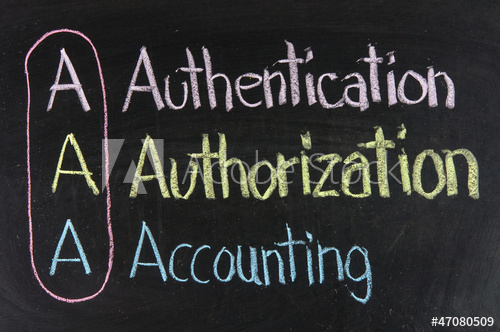 A Authentication
A Authorization
A Accounting
Adobe Stock
#47080509